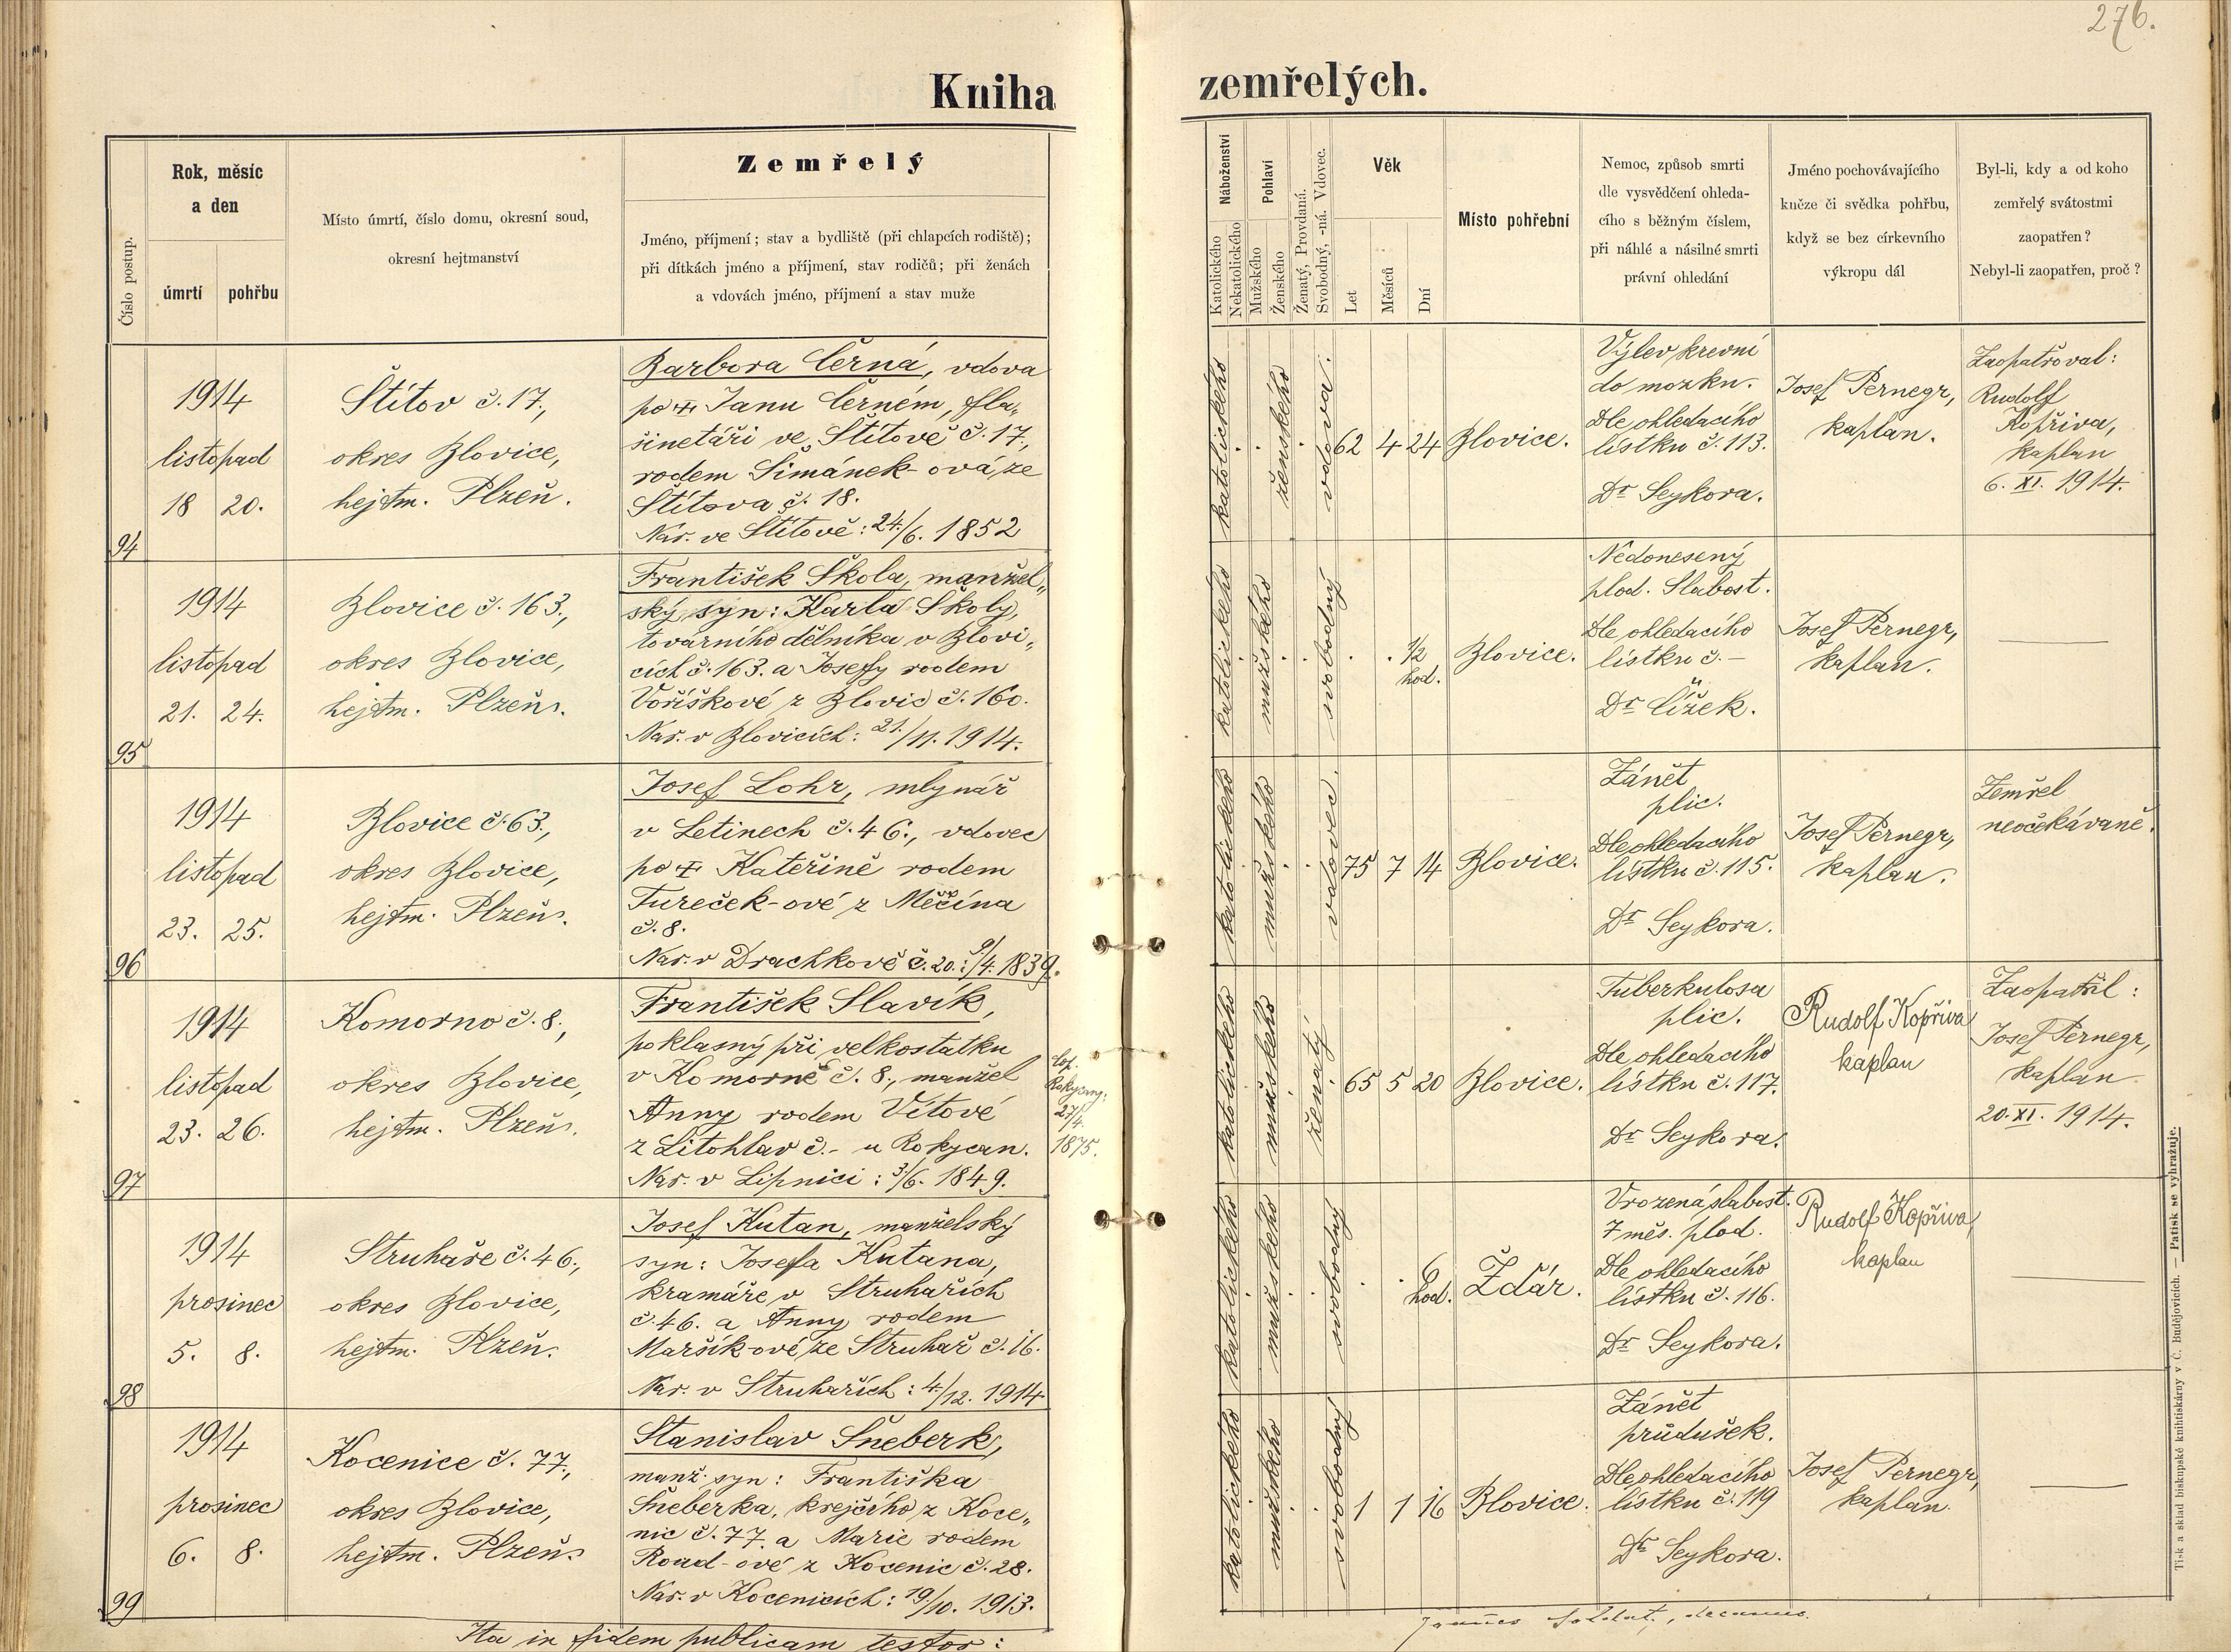 276.
Kniha zemřelých.
Číslo postup.
Rok, měsíc
a den
úmrtí
pohřbu
Místo úmrtí, číslo domu, okresní soud,
okresní hejtmanství
Zemřelý
Jméno, příjmení; stav a bydliště (při chlapcích rodiště);
při dítkách jméno a příjmení, stav rodičů; při ženách
a vdovách jméno, příjmení a stav muže
Náboženství
Katolického
Nekatolického
Pohlaví
Mužského
Ženského
Ženatý, Provdaná.
Svobodný, -ná. Vdovec.
Věk
Let
Měsíců
Dní
Místo pohřební
Nemoc, způsob smrti
dle vysvědčení ohleda-
cího s běžným číslem,
při náhlé a násilné smrti
právní ohledání
Jméno pochovávajícího
kněze či svědka pohřbu,
když se bez církevního
výkropu dál
Byl-li, kdy a od koho
zemřelý svátostmi
zaopatřen?
Nebyl-li zaopatřen, proč?
94
1914
listopad
18 20.
Štítov č. 17.,
okres Blovice,
hejtm. Plzeň.
Barbora Černá, vdova
po † Janu Černém, fla„
šinetáři ve Štítově č. 17.,
rodem Šimánek-ová ze
Štítova č. 18.
Nar. ve Štítově: 24./6. 1852
katolického
ženského
vdova.
62 4 24
Blovice.
Výlev krevní
do mozku.
Dle ohledacího
lístku č. 113.
Dr Seykora.
Josef Pernegr,
kaplan.
Zaopatřoval:
Rudolf
Kopřiva,
kaplan
6. XI. 1914.
95
1914
listopad
21. 24.
Blovice č. 163.,
okres Blovice,
hejtm. Plzeň.
František Škola, manžel„
ský syn: Karla Školy,
továrního dělníka v Blovi„
cích č. 163. a Josefy rodem
Voříškové z Blovic č. 160.
Nar. v Blovicích: 21./11. 1914.
katolického
mužského
svobodný
1/2
hod.
Blovice.
Nedonesený
plod. Slabost.
Dle ohledacího
lístku č. —
Dr Čížek.
Josef Pernegr,
kaplan.
96
1914
listopad
23. 25.
Blovice č. 63.,
okres Blovice,
hejtm. Plzeň.
Josef Lohr, mlynář
v Letinech č. 46., vdovec
po † Kateřině rodem
Tureček-ové z Měčína
č. 8.
Nar. v Drachkově č. 20.: 9/4. 1839.
katolického
mužského
vdovec.
75 7 14
Blovice.
Zánět
plic.
Dle ohledacího
lístku č. 115.
Dr Seykora.
Josef Pernegr,
kaplan.
Zemřel
neočekávaně.
97
1914
listopad
23. 26.
Komorno č. 8.,
okres Blovice,
hejtm. Plzeň.
František Slavík,
poklasný při velkostatku
v Komorně č. 8., manžel
Anny rodem Vítové
z Litohlav č. - u Rokycan.
Nar. v Lipnici: 3./6. 1849.
Rokycany:
27/4.
1875.
katolického
mužského
ženatý
65 5 20
Blovice.
Tuberkulosa
plic.
Dle ohledacího
lístku č. 117.
Dr Seykora.
Rudolf Kopřiva
kaplan
Zaopatřil:
Josef Pernegr,
kaplan
20. XI. 1914.
98
1914
prosinec
5. 8.
Struhaře č. 46.,
okres Blovice,
hejtm. Plzeň.
Josef Kutan, manželský
syn: Josefa Kutana,
kramáře v Struhařích
č. 46. a Anny rodem
Maršík-ové ze Struhař č. 16.
Nar. v Struhařích: 4./12. 1914
katolického
mužského
svobodný
6
hod.
Ždár.
Vrozená slabost.
7 měs. plod.
Dle ohledacího
lístku č. 116.
Dr Seykora.
Rudolf Kopřiva,
kaplan
99
1914
prosinec
6. 8.
Kocenice č. 77.,
okres Blovice,
hejtm. Plzeň.
Stanislav Šneberk,
manž. syn: Františka
Šneberka, krejčího z Koce„
nic č. 77. a Marie rodem
Roud-ové z Kocenic č. 28.
Nar. v Kocenicích: 19./10. 1913.
katolického
mužského
svobodný
1 1 16
Blovice.
Zánět
průdušek.
Dle ohledacího
lístku č. 119
Dr Seykora.
Josef Pernegr,
kaplan.
Ita in fidem publicam testor:
decanus.
Tisk a sklad biskupské knihtiskárny v Č. Budějovicích. — Patisk se vyhražuje.